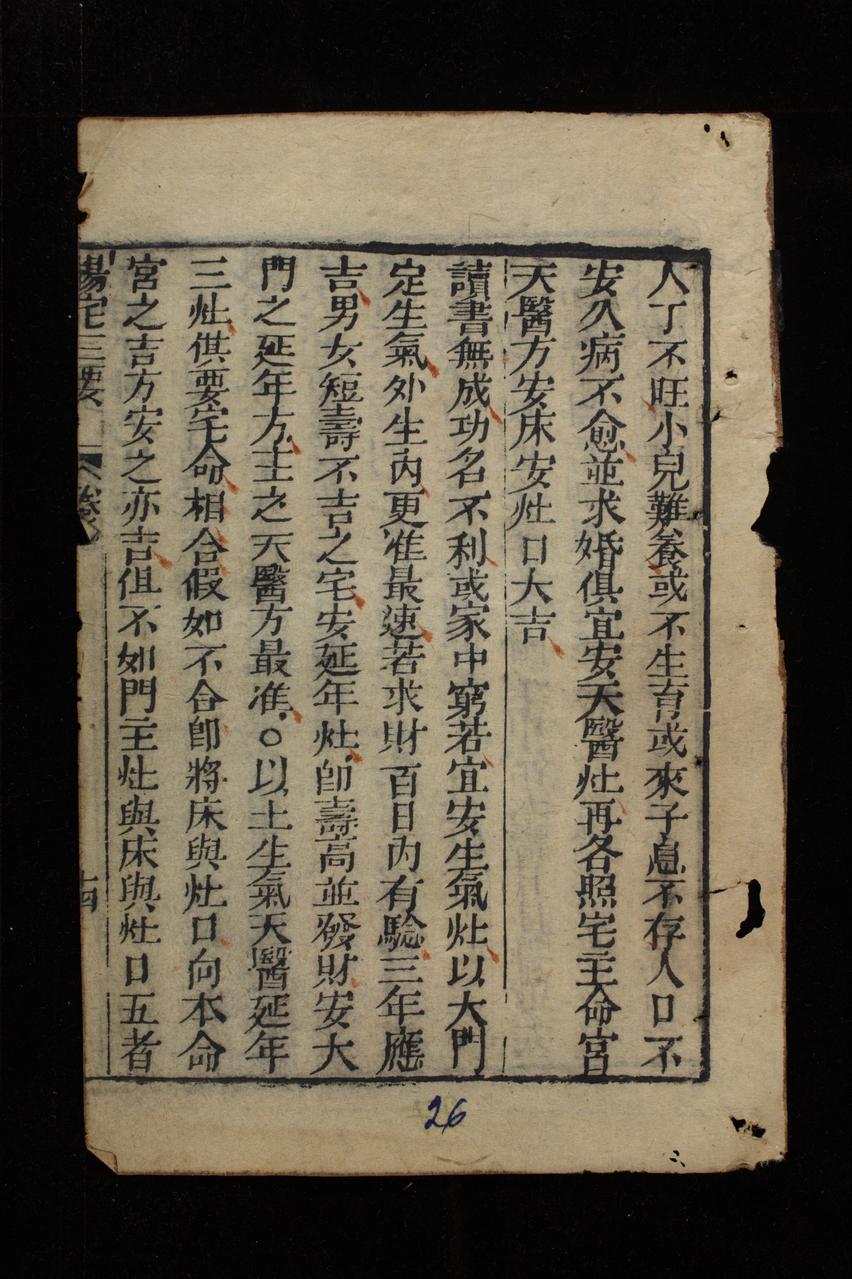 人丁不旺小兒難養或不生育或來子息不存人口不
安久病不愈並求婚俱宜安天醫灶再各照宅主命宮
天醫方安床安灶口大吉
讀書無成功名不利或家中窮若宜安生氣灶以大門
定生氣外生內更准最速若求財百日內有驗三年應
吉男女短壽不吉之宅安延年灶卽壽高並發財安大
門之延年方主之天醫方最准○以上生氣天醫延年
三灶俱要宅命相合假如不合卽將床與灶口向本命
宮之吉方安之亦吉但不如門主灶與床與灶口五者
陽宅三要 卷 十四
26